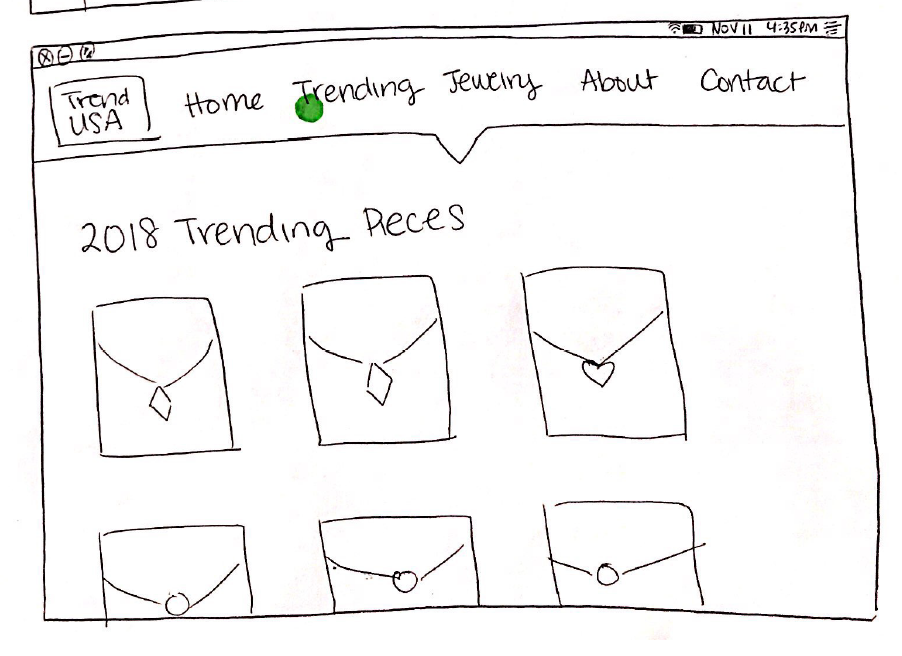 NOV 11 4:35PM
Trend
USA
Home Trending Jewelry About Contact
2018 Trending Pieces